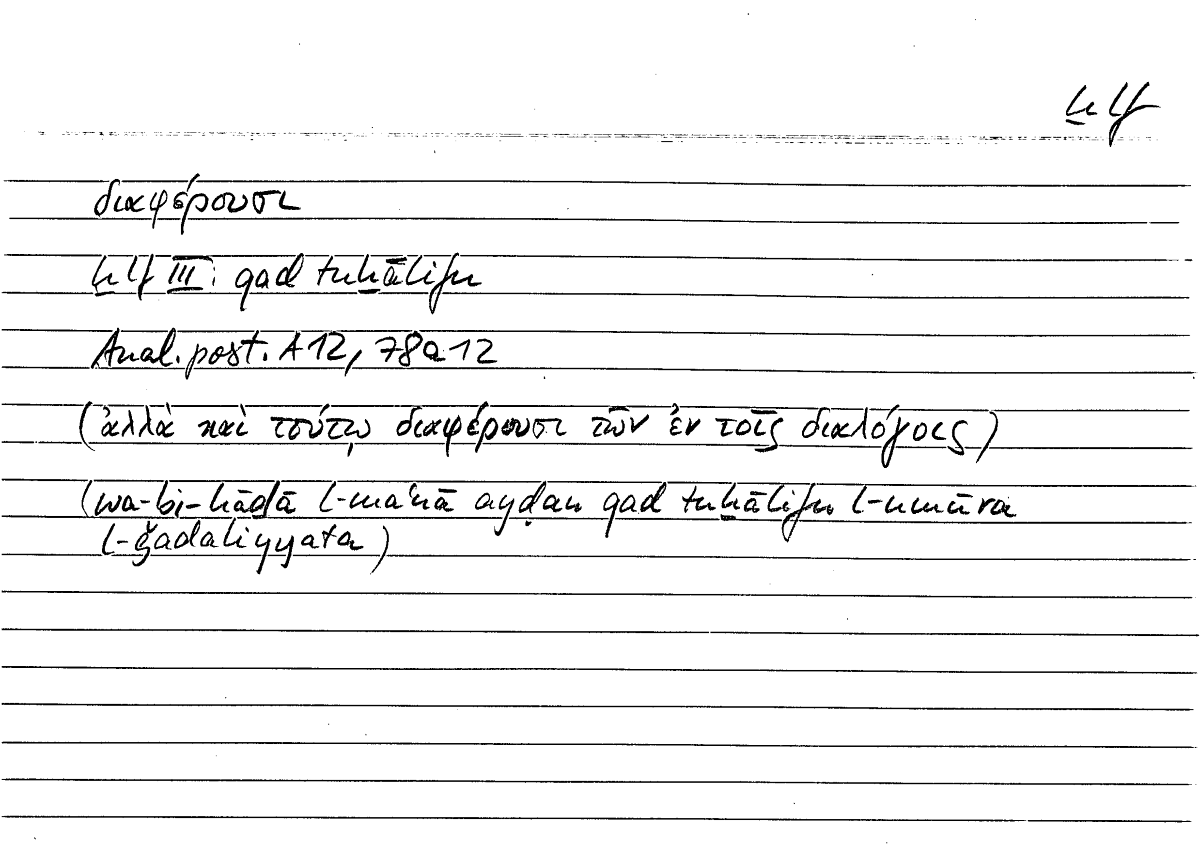 ḫlf
διαφέρουσι
ḫlf III: qad tuḫālifu
Anal. post. A 12, 78a12
(ἀλλὰ καὶ τούτῳ διαφέρουσι τῶν ἐν τοῖς διαλόγοις)
(wa-bi-hāḏā l-maʿnā ayḍan qad tuḫālifu l-umūra
l-ǧadaliyyata)